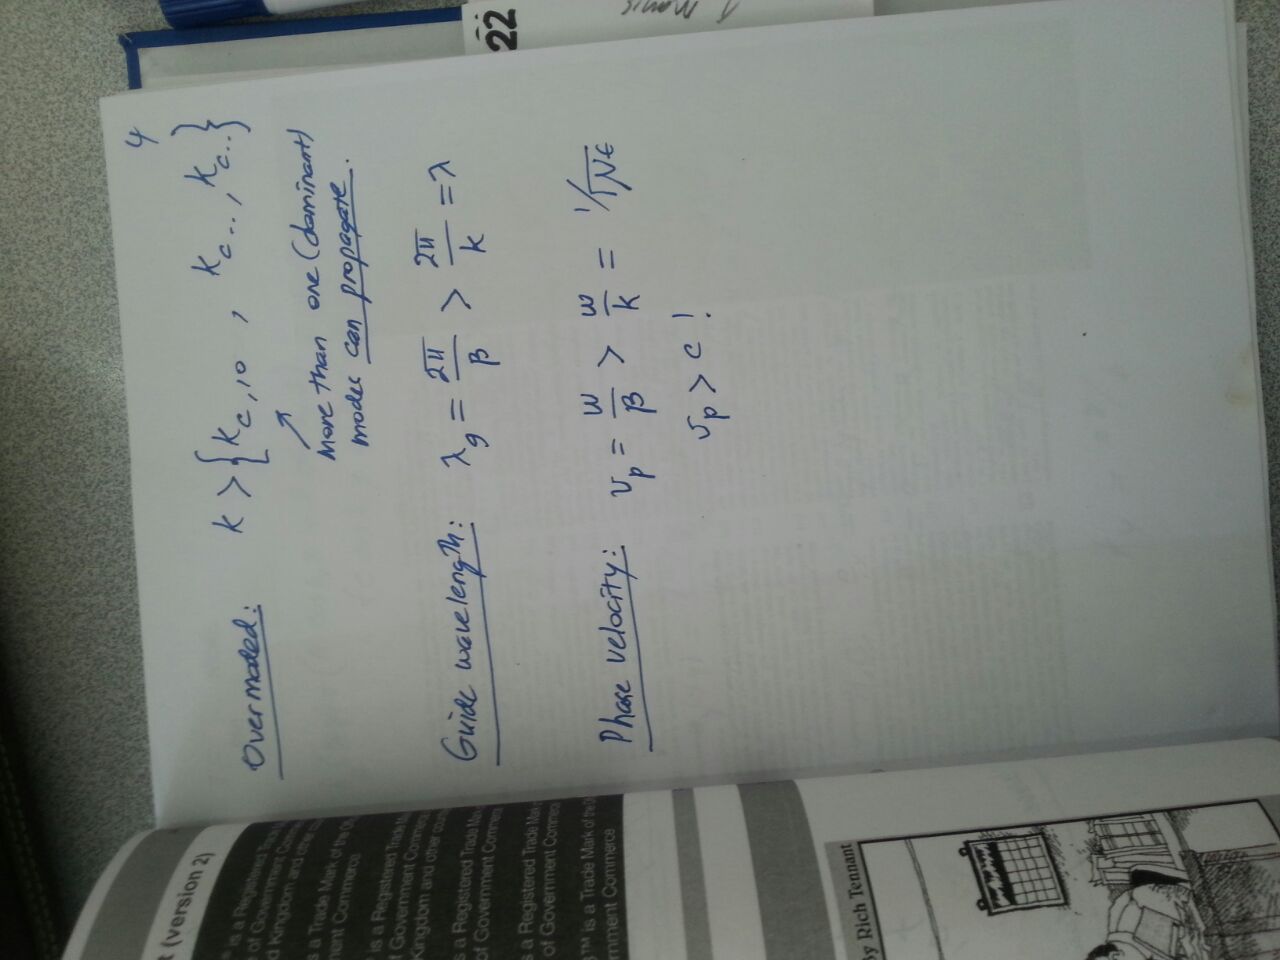 4
Overmoded: k > {k_c,10 , k_c.. , k_c.. , k_c..}
More than one (dominant)
modes can propagate.
Guide wavelength: λ_g = 2π/β > 2π/k = λ
Phase velocity: v_p = ω/β > ω/k = 1/√με
v_p > c !
22
t (version 2)
is a Registered Trade
of Government
d Kingdom and
s a Trade Mark of the
ment Commerce
is a Registered Trade
f Government Comme
Kingdom and other
s a Registered Trade
of Government Commerc
s a Registered Trade Mar
of Government Commerc
™ is a Trade Mark of the
rnment Commerce
By Rich Tennant